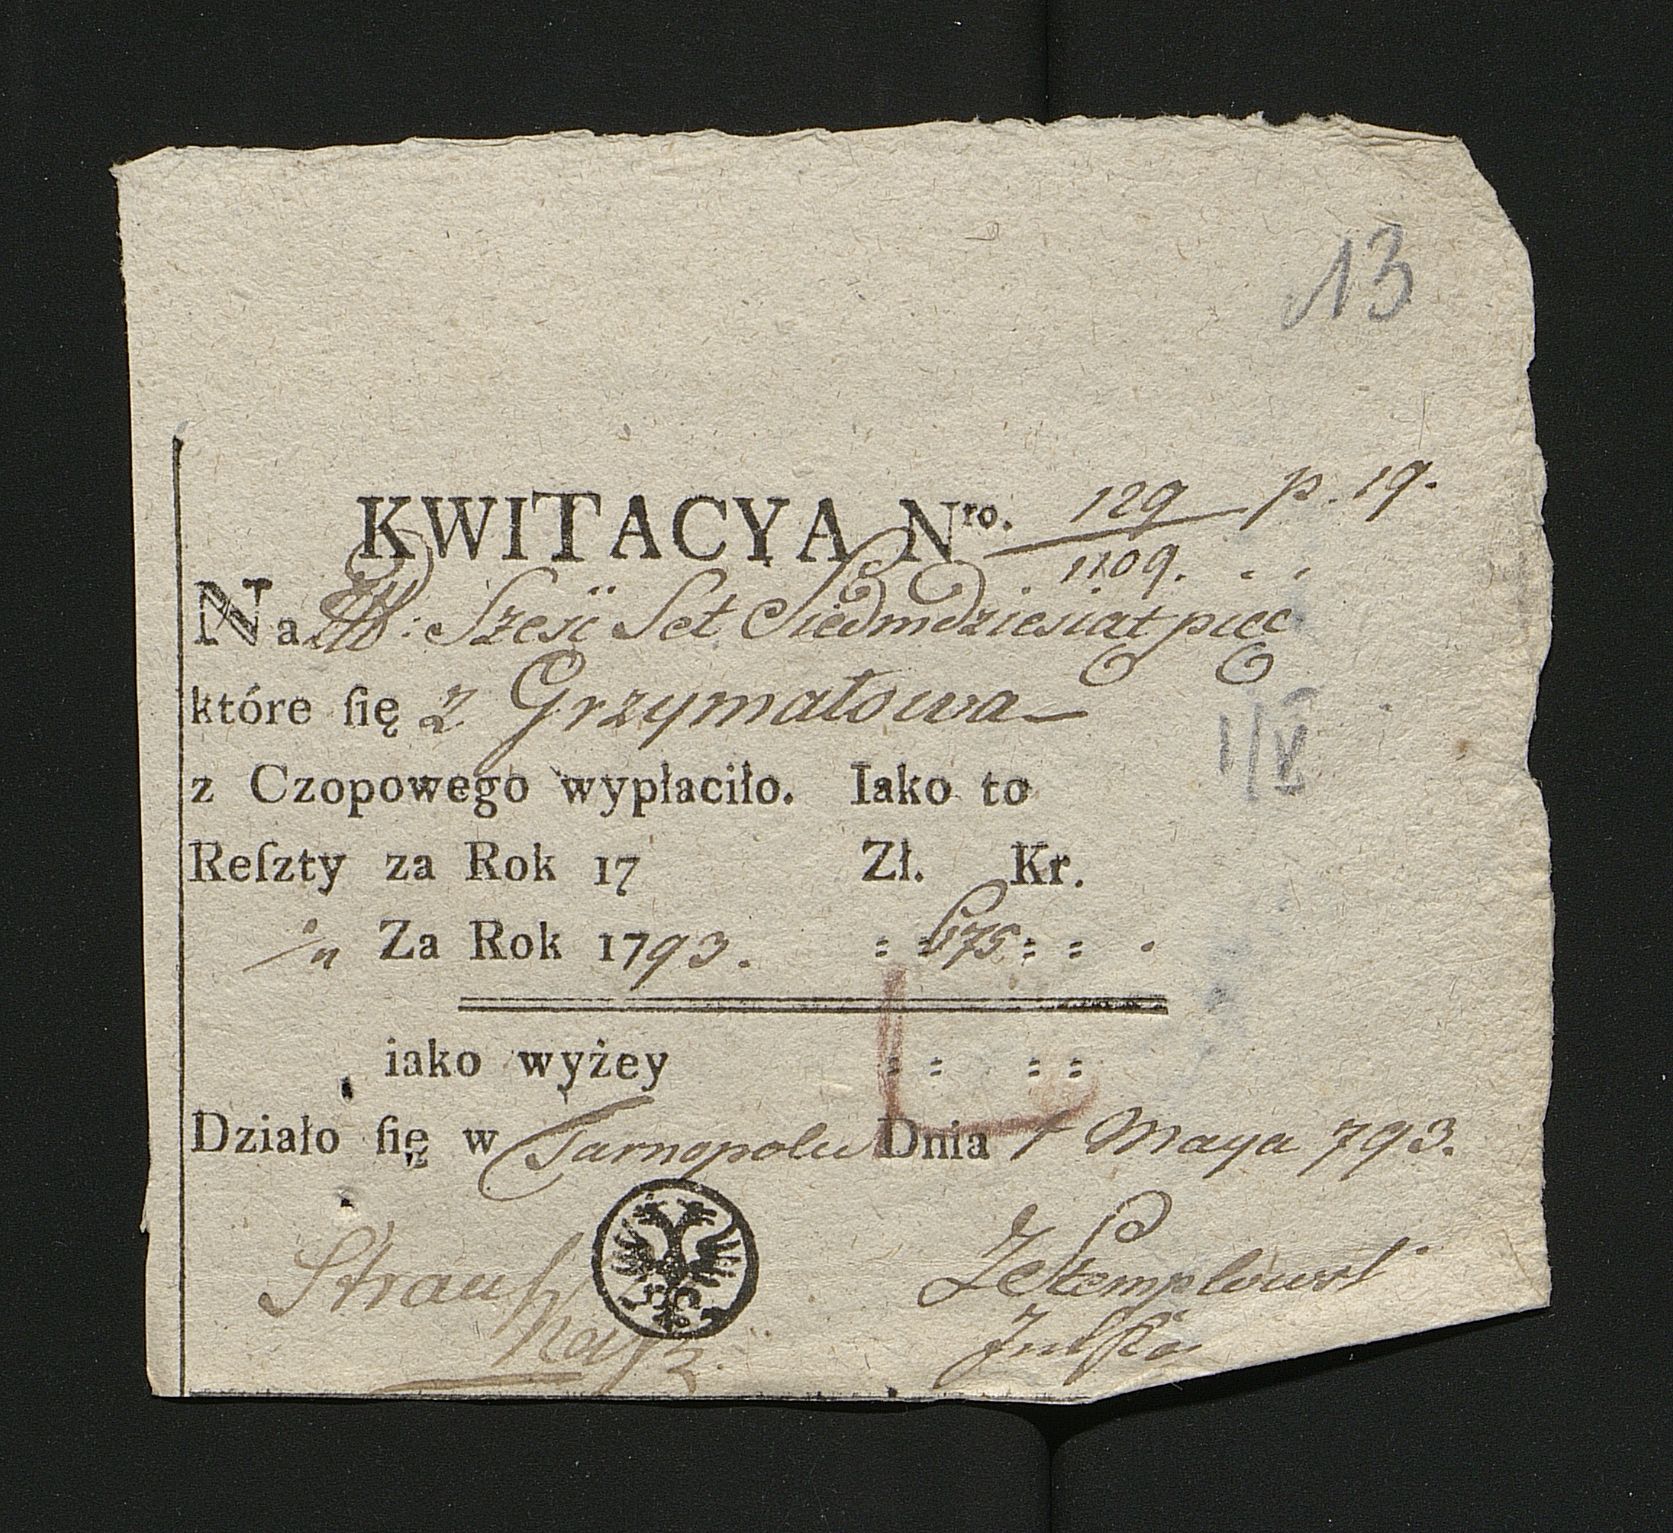 13
KWITACYA Nro. 129 p. 19.
1109.
Na Sześć Set Siedmdziesiąt pięć
które ſię z Grzymałowa
I/V
z Czopowego wypłaciło. Iako to
Reſzty za Rok 17 Zł. Kr.
Za Rok 1793. 675
iako wyżey
Działo ſię w Tarnopolu Dnia 1 Maya 793.
Strauß